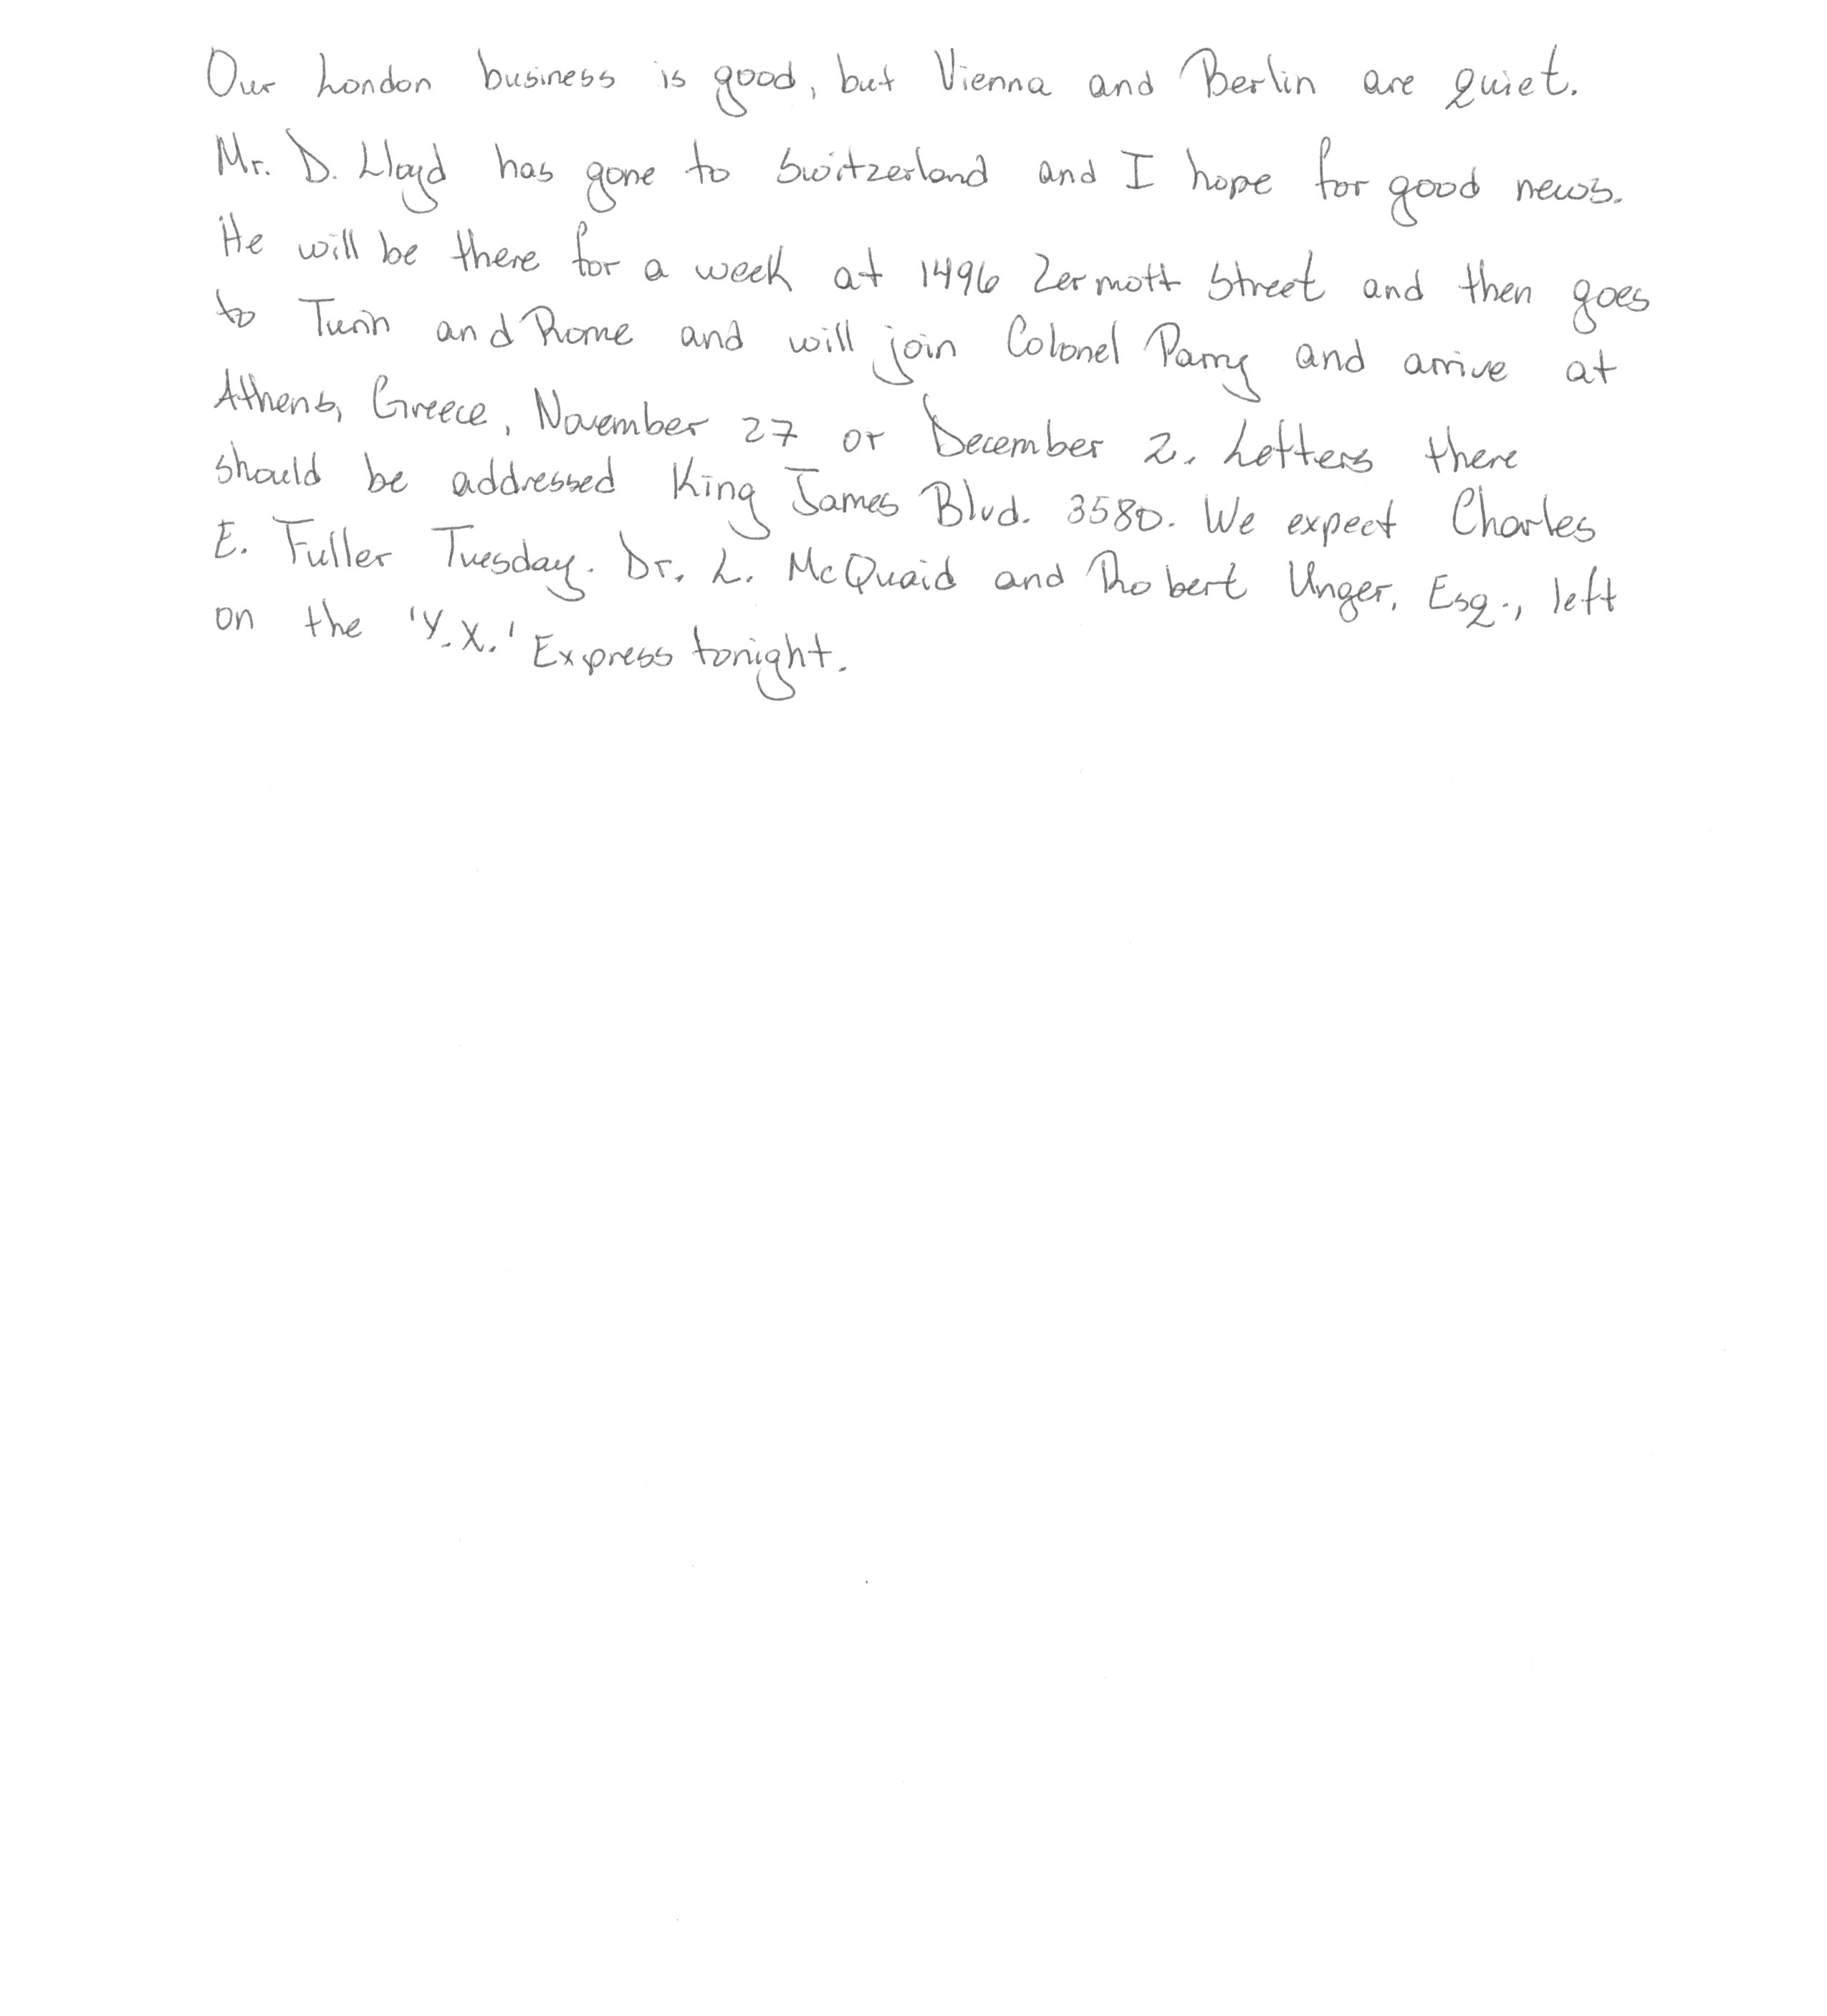 Our London business is good, but Vienna and Berlin are quiet.
Mr. D. Lloyd has gone to Switzerland and I hope for good news.
He will be there for a week at 1496 Zermott Street and then goes
to Turin and Rome and will join Colonel Parry and arrive at
Athens, Greece, November 27 or December 2. Letters there
should be addressed King James Blvd. 3580. We expect Charles
E. Fuller Tuesday. Dr. L. McQuaid and Robert Unger, Esq., left
on the 'Y.X.' Express tonight.